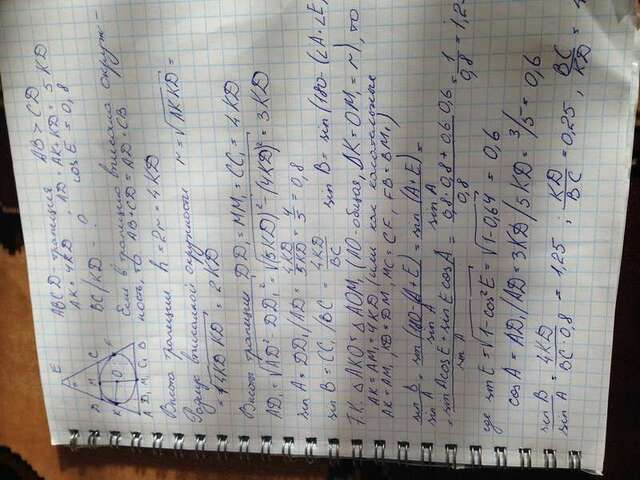 ABCD - трапеция AB > CD
AK = 4KD AD = AK + KD = 5 KD
cos E = 0,8
BC/KD - ?
Если в трапецию вписана окруж-
ность, то AB + CD = AD + CB
Высота трапеции h = 2r = 4KD
вписанной окружности r = √AK·KD =
= √4KD·KD = 2KD
Высота трапеции DD₁ = MM₁ = CC₁ = 4KD
AD₁ = √AD² - DD₁² = √(5KD)² - (4KD)² = 3KD
sin A = DD₁/AD = 4KD/5KD = 4/5 = 0,8
sin B = CC₁/BC = 4KD/BC sin B = sin (180 - (∠A+∠E)
Т.К. △AKO = △AOM₁ (AO - общая, OK = OM₁ = r), то
AK = AM₁ = 4KD (или как касательные
AK = AM₁, KD = DM, MC = CF, FB = BM₁)
sin B/sin A = sin(180-(A+E))/sin A = sin(A+E)/sin A =
= sin A cos E + sin E cos A/sin A = 0,8·0,8 + 0,6·0,6/0,8 = 1/0,8 = 1,2
где sin E = √1 - cos² E = √1 - 0,64 = 0,6
cos A = AD₁/AD = 3KD/5KD = 3/5 = 0,6
sin B/sin A = 4KD/BC·0,8 = 1,25 ; KD/BC = 0,25 ; BC/KD =
E
D M C
K O F
A D₁ M₁ C₁ B